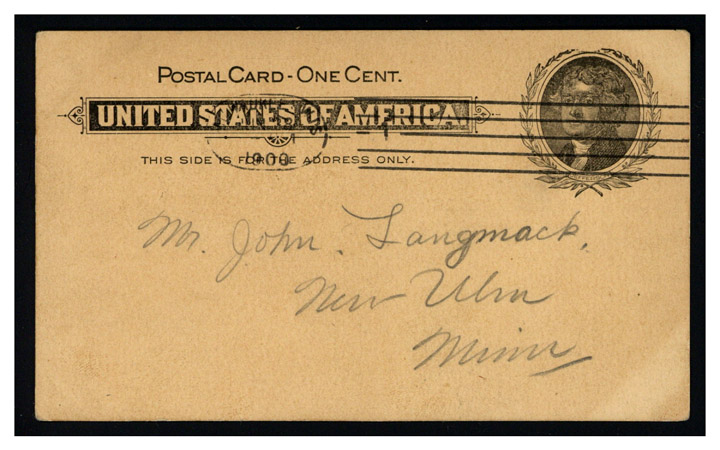 POSTAL CARD - ONE CENT.
UNITED STATES OF AMERICA.
1900
THIS SIDE IS FOR THE ADDRESS ONLY.
Mr. John. Langmack,
New Ulm
Minn